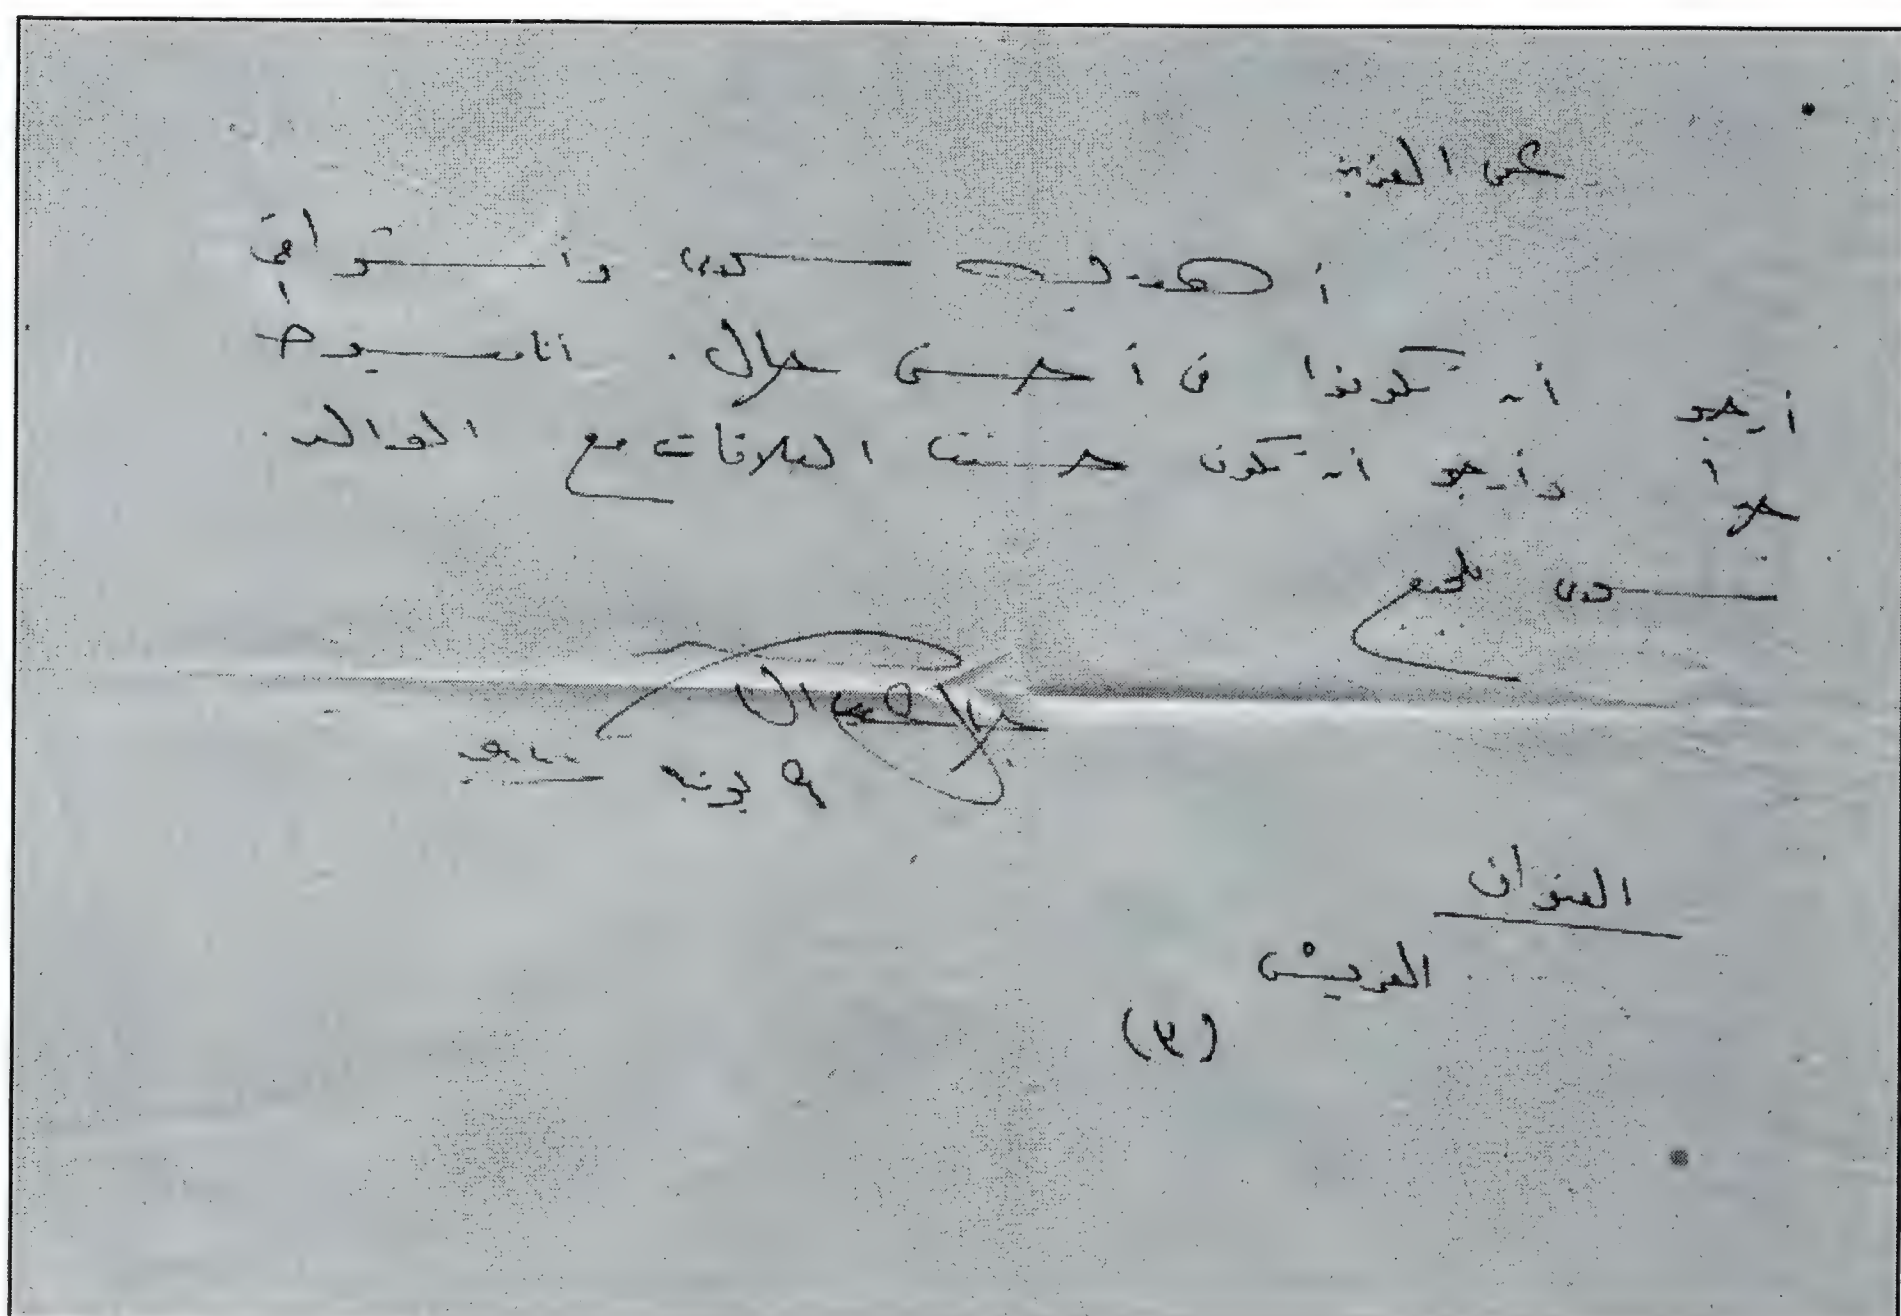 عمى العزيز
أهديك سلامى وأشواقى
أرجو أن تكونوا فى أحسن حال. أنا مبسوط
جداً وأرجو أن تكون حسنت العلاقات مع الوالد.
سلامى للجميع
جمال
٩ يونيه
العنوان
العريش
(٣)